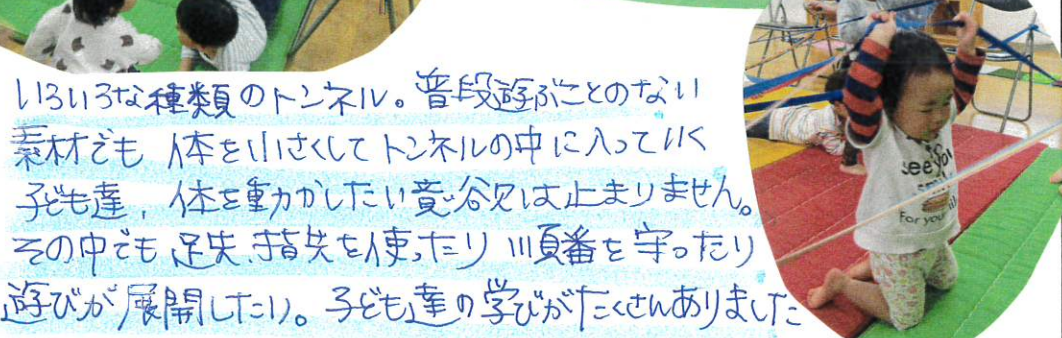 いろいろな種類のトンネル。普段遊ぶことのない
素材でも 体を小さくしてトンネルの中に入っていく
子ども達、体を動かしたい意欲は止まりません。
その中でも 足先、指先を使ったり 順番を守ったり
遊びが展開したり。子ども達の学びがたくさんありました
see you
For your